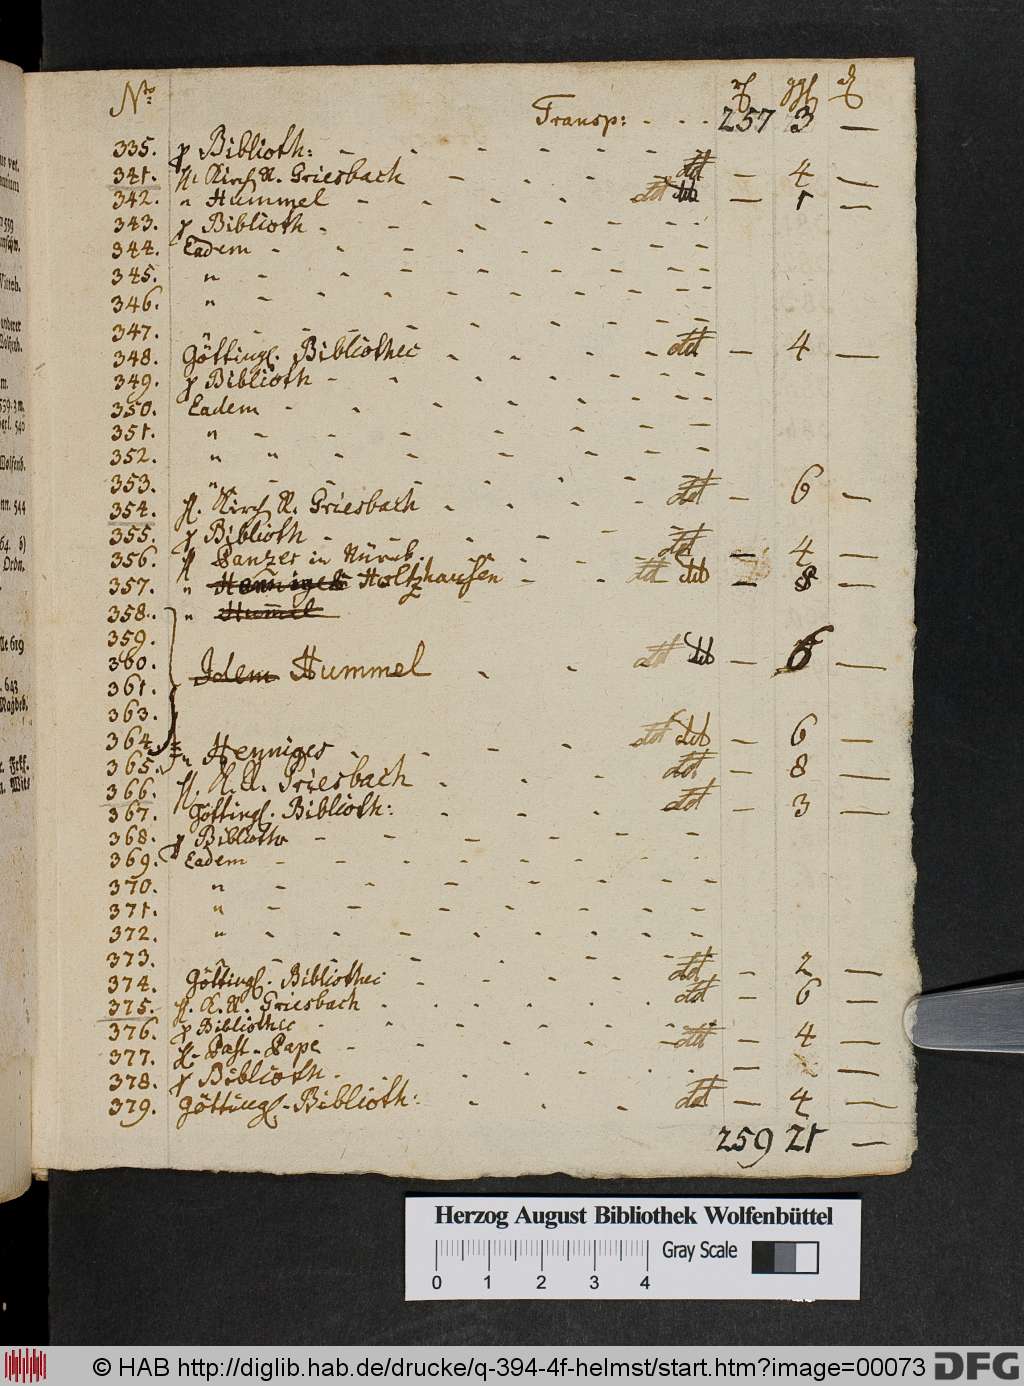 No
Transp: - - - 257 3 —
335. p Biblioth: - - - - - -
341. H. Kirch R. Griesbach - - - - ddt — 4 —
342. " Hummel - - - - - ddt ddt — 1 —
343. p Biblioth - - - - - -
344. Eadem - - - - - - -
345. " - - - - - - -
346. " - - - - - - -
347. " - - - - - - -
348. Götting. Bibliothec - - - - ddt — 4 —
349. p Biblioth - - - - - -
350. Eadem - - - - - -
351. " - - - - - -
352. " " - - - - - -
353. " - - - - - -
354. H. Kirch R. Griesbach - - - ddt — 6 —
355. p Biblioth - - - - - -
356. H Panzer in Nürnb. - - - ddt — 4 —
357. " Henniges Holtzhausen - - ddt ddt — 8 —
358. " Hummel
359.
360. Idem Hummel - - ddt ddt — 6 —
361.
363.
364. " Henniges - - - - ddt ddt — 6 —
365.
366. H. K. R. Griesbach - - - - ddt — 8 —
367. Götting. Biblioth: - - - - ddt — 3 —
368. p Biblioth - - - - - -
369. Eadem - - - - - -
370. " - - - - - -
371. " - - - - - -
372. " - - - - - -
373. " - - - - - -
374. Götting. Bibliothec - - - - ddt — 2 —
375. H. K. R. Griesbach - - - - ddt — 6 —
376. p Bibliothec - - - - - -
377. H. Past. Pape - - - - ddt — 4 —
378. p Biblioth - - - - - —
379. Götting. Biblioth: - - - ddt — 4 —
259 21 —
Herzog August Bibliothek Wolfenbüttel
0 1 2 3 4
Gray Scale
© HAB http://diglib.hab.de/drucke/q-394-4f-helmst/start.htm?image=00073 DFG